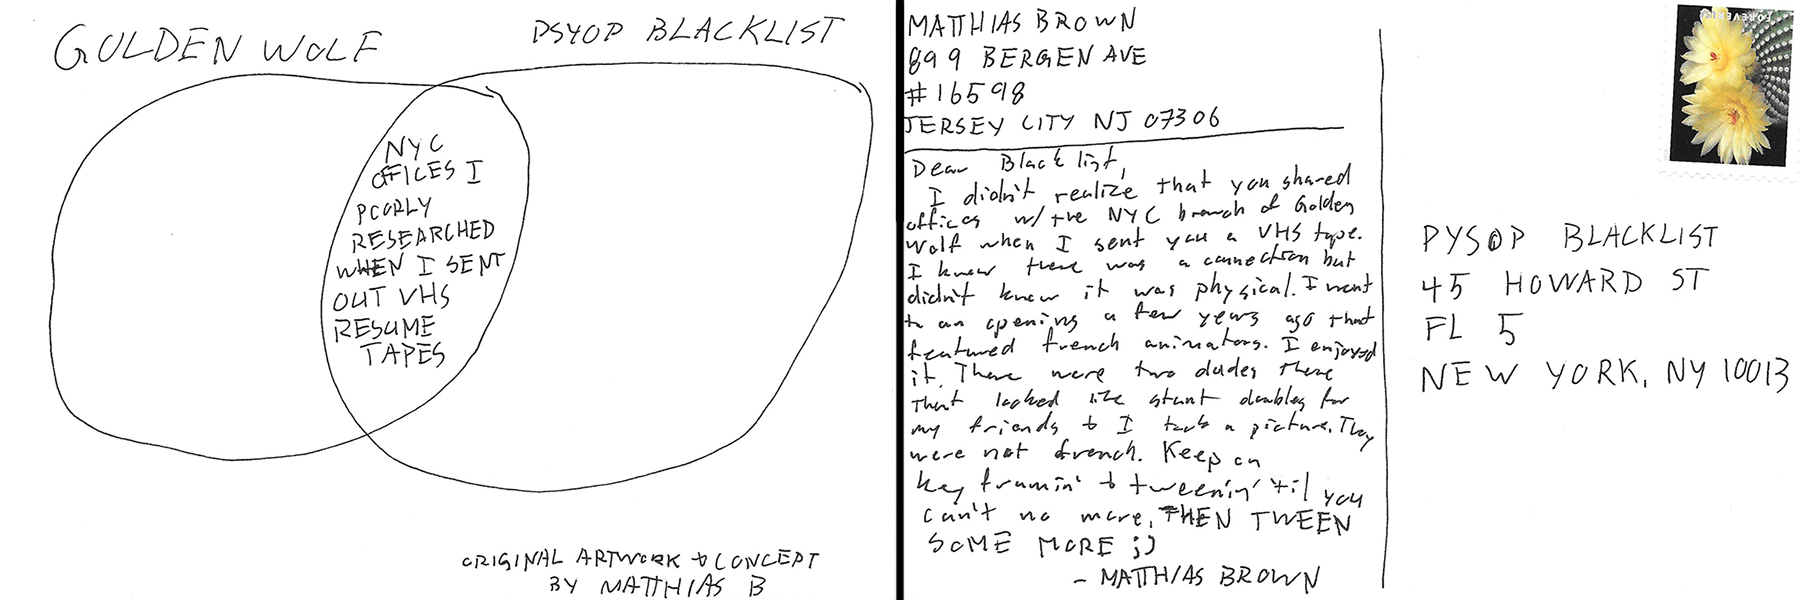 GOLDEN WOLF
PSYOP BLACKLIST
NYC
OFFICES I
POORLY
RESEARCHED
WHEN I SENT
OUT VHS
RESUME
TAPES
ORIGINAL ARTWORK & CONCEPT
BY MATTHIAS B
MATTHIAS BROWN
899 BERGEN AVE
#16598
JERSEY CITY NJ 07306
Dear Blacklist,
I didn't realize that you shared
offices w/ the NYC branch of Golden
Wolf when I sent you a VHS tape.
I knew there was a connection but
didn't know it was physical. I went
to an opening a few years ago that
featured french animators. I enjoyed
it. There were two dudes there
that looked like stunt doubles for
my friends & I took a picture. They
were not french. Keep on
key framin' & tweenin' 'til you
can't no more. THEN TWEEN
SOME MORE ;)
- MATTHIAS BROWN
FOREVER
PYSOP BLACKLIST
45 HOWARD ST
FL 5
NEW YORK, NY 10013